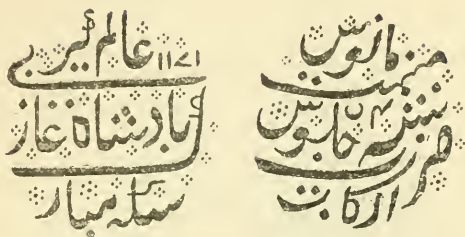 ۱۱۷۱ عالم گیر
بادشاه غازی
سکه مبارک
مانوس
میمنت
سنه ۴ جلوس
ضرب
ارکات